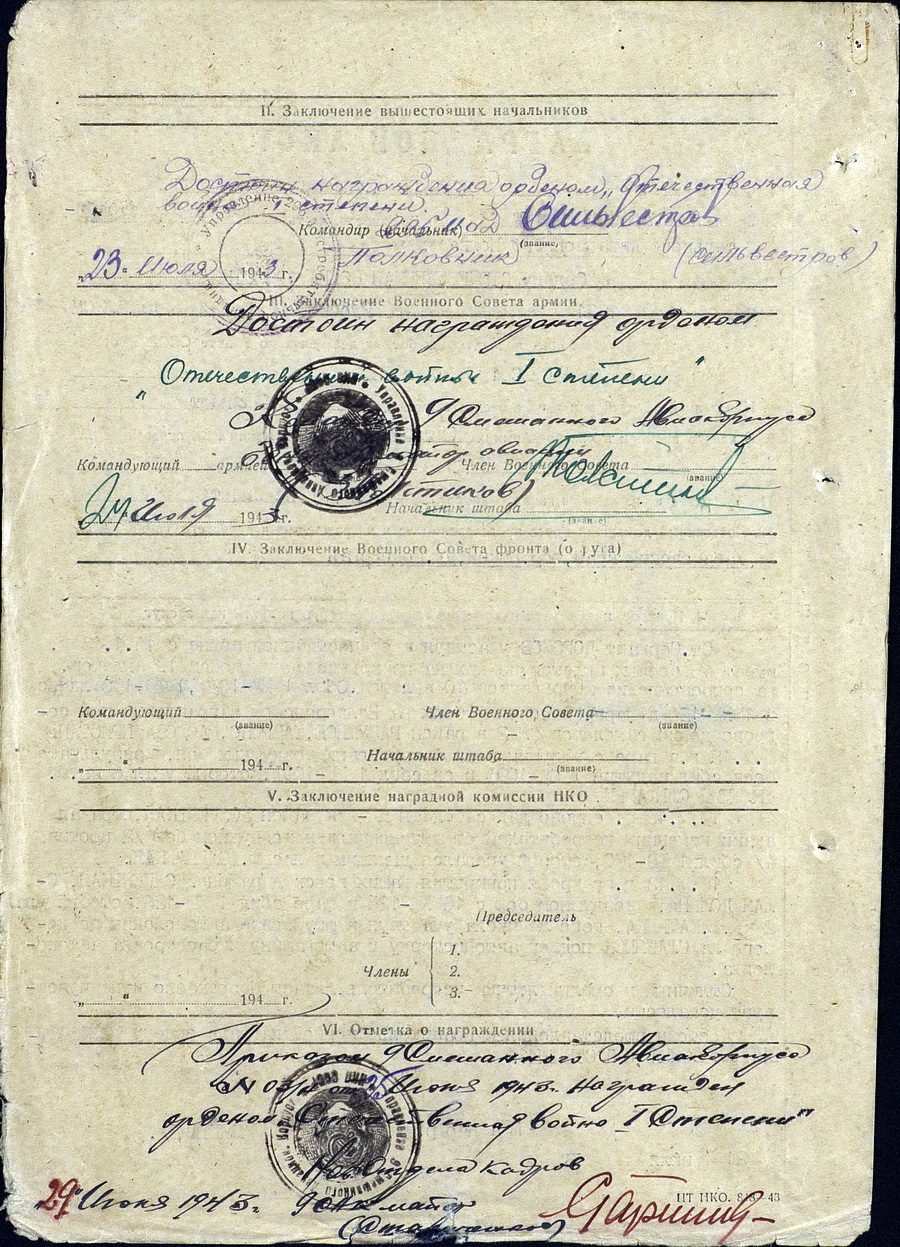 II. Заключение вышестоящих начальников
Достоин награждения орденом „Отечественная
война I степени.
Командир (начальник) 206 ШАД Сильвестров
(звание)
„23" Июля 1943 г. Полковник (Сильвестров)
III. Заключение Военного Совета армии.
Достоин награждения орденом
„Отечественная война I степени"
9 Смешанного Авиакорпуса
авиации
Командующий армией Член Военного Совета
(звание)
24 Июля 1943 г. Начальник штаба
(звание)
IV. Заключение Военного Совета фронта (округа)
Командующий Член Военного Совета
(звание) (звание)
„ " 194 г. Начальник штаба
(звание)
V. Заключение наградной комиссии НКО
Председатель
1.
Члены 2.
3.
„ " 194 г.
VI. Отметка о награждении
Приказом 9 Смешанного Авиакорпуса
от 25 Июля 1943г. награжден
орденом Отечественная война I Степени"
Нач. отдела кадров
29" Июля 1943г. 9 САК майор
НТ НКО. 43